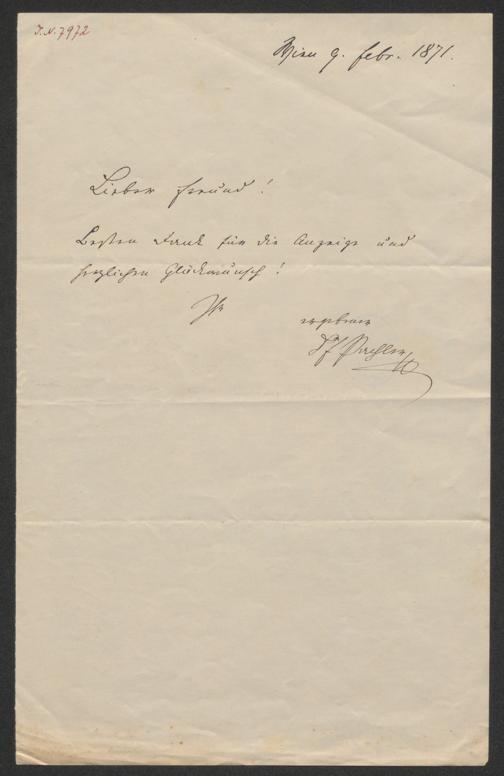 J.N. 7972
Wien 9. Febr. 1871.
Lieber Freund!
Besten Dank für die Anzeige und
herzlichen Glückwunsch!
Ihr
ergebener
Pachler